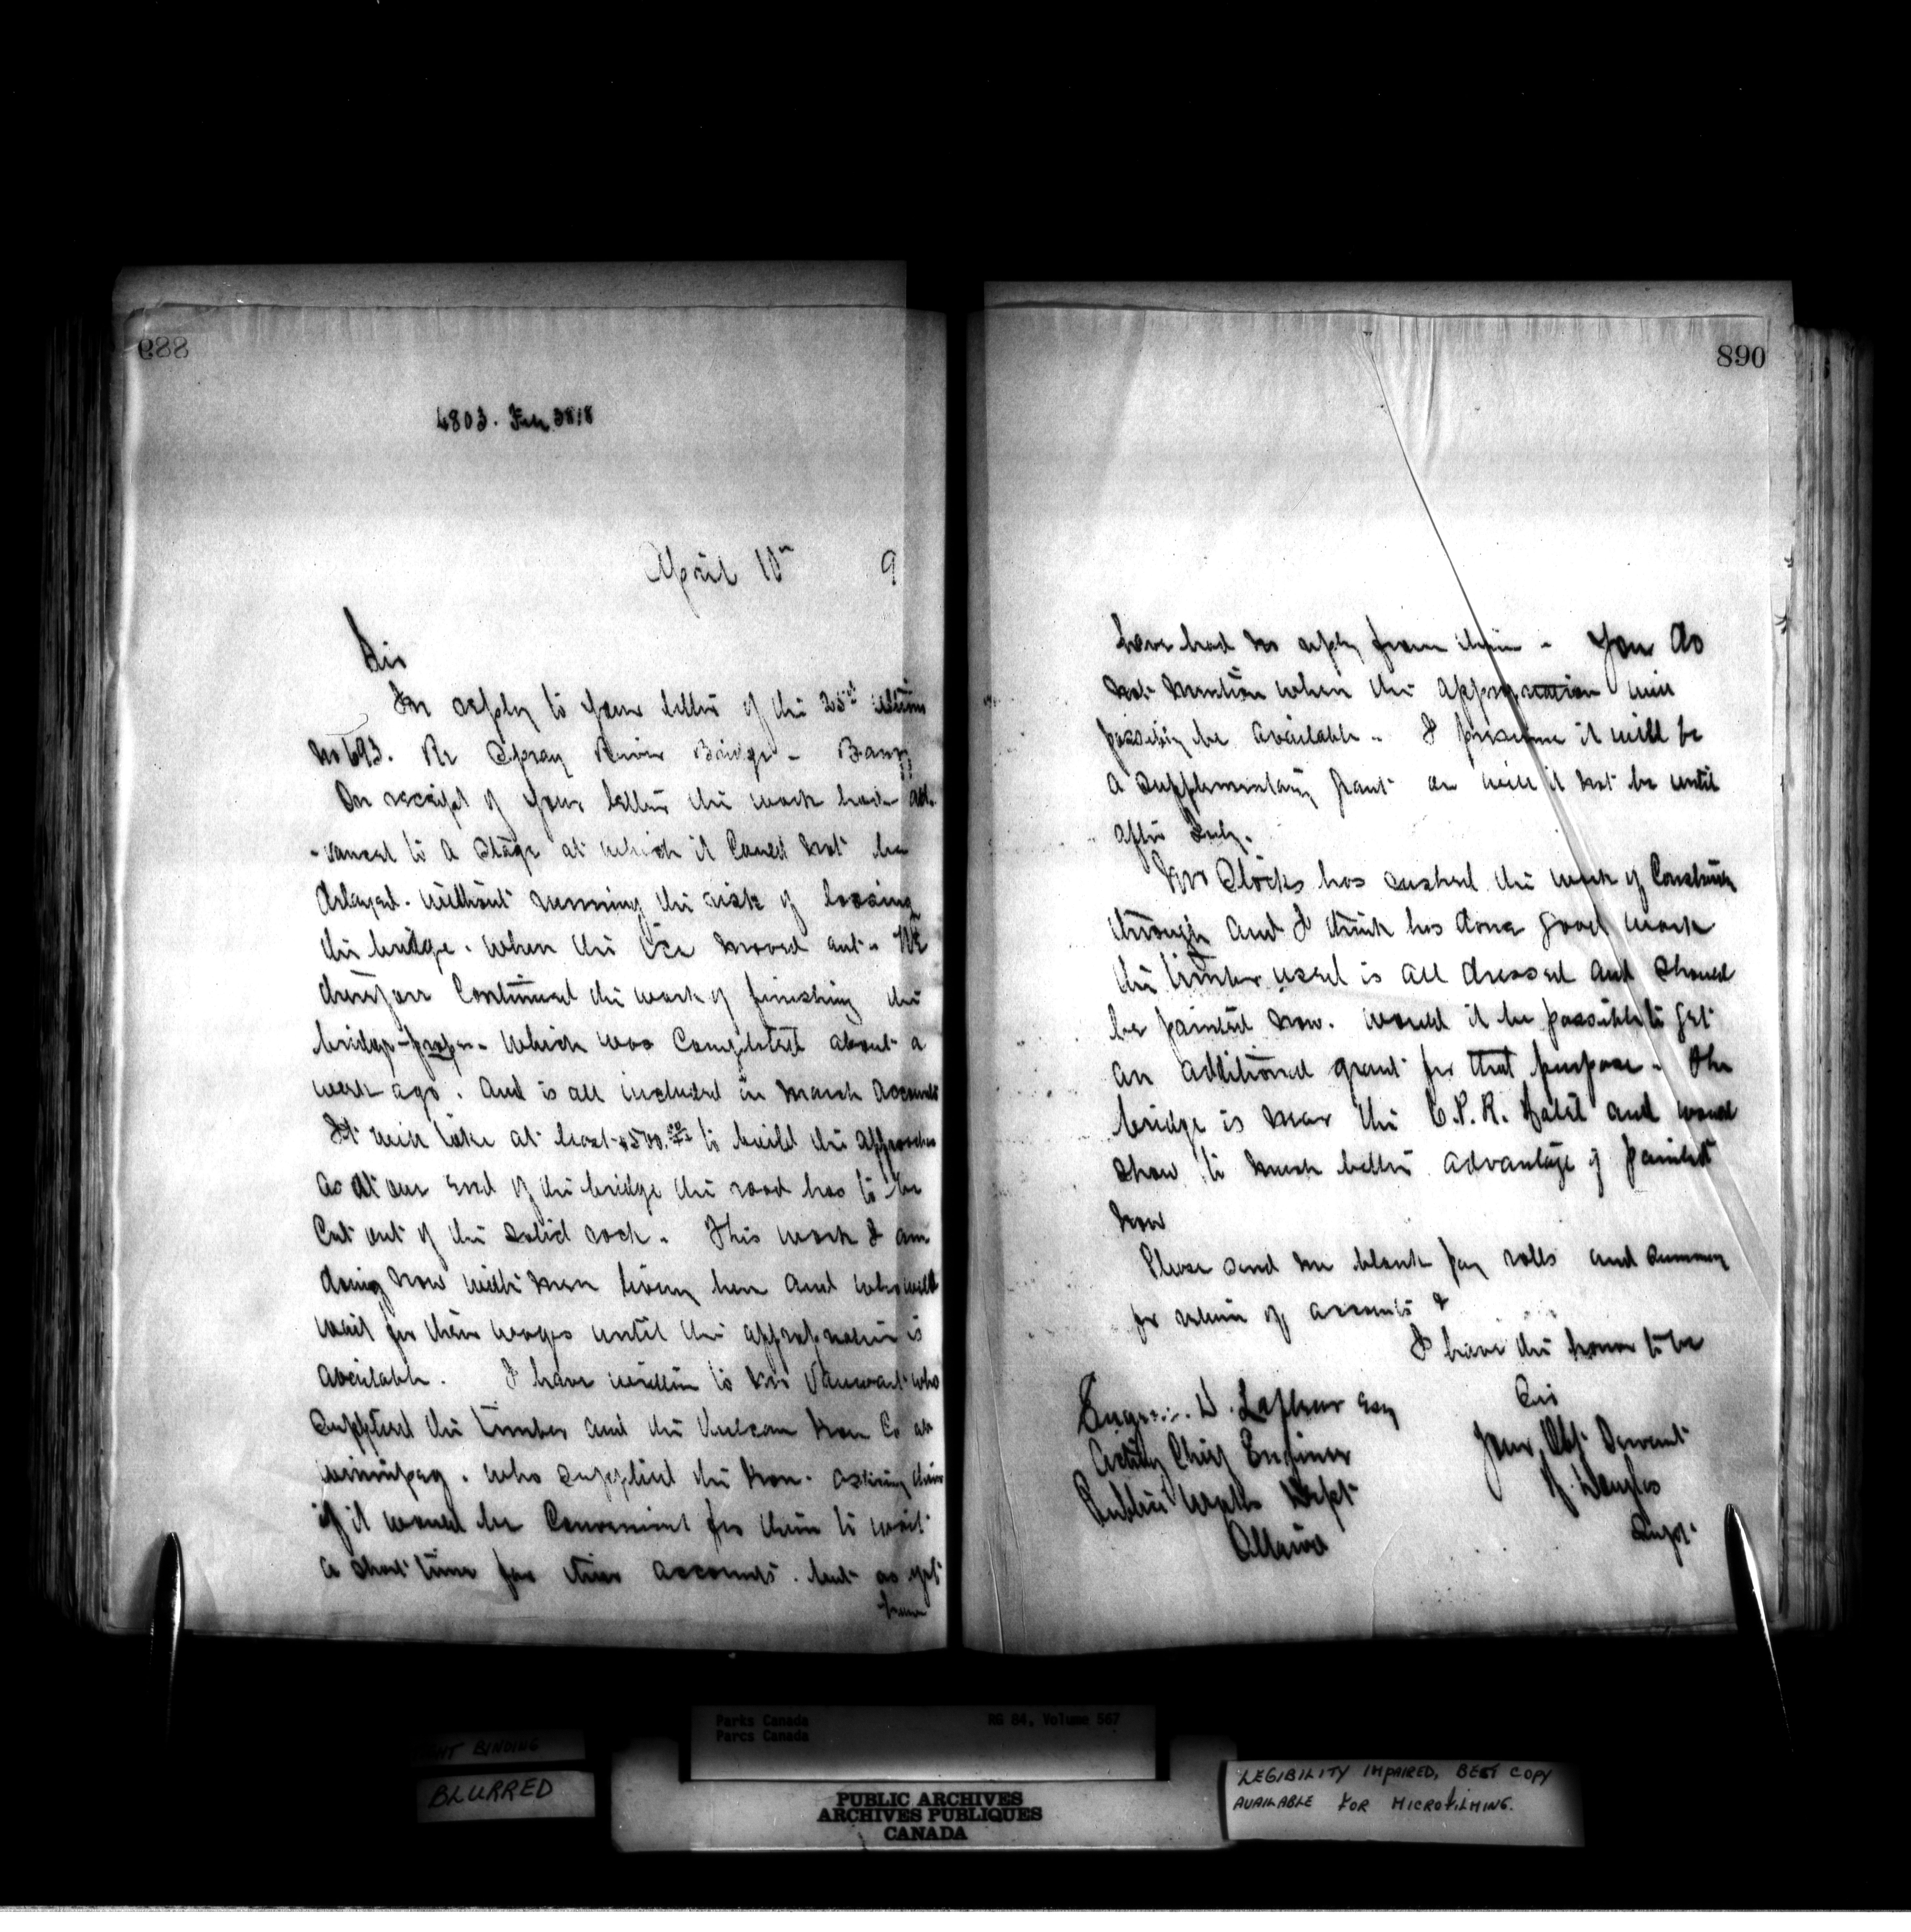 889
4803.
April 10th 9
Sir
In reply to your letter of the 25th ultimo
No 693. Re Spray River Bridge - Banff
On receipt of your letter the work had ad-
-vanced to a stage at which it could not be
delayed. without running the risk of loosing
the bridge. when the ice moved out. We
therefore continued the work of finishing the
bridge proper - which was completed about a
week ago. and is all included in March accounts
It will take at least $500.00 to build the approaches
as at one end of the bridge the road has to be
cut out of the solid rock. This work I am
doing now with men living here and who will
wait for their wages until the appropriation is
available. I have written to Mr Vanwart who
supplied the timber and the Vulcan Iron Co at
Winnipeg. who supplied the iron. asking them
if it would be convenient for them to wait
a short time for their accounts. but as yet
have
890
have had no reply from them - You do
not mention when the appropriation will
possibly be available. I presume it will be
a supplementary grant or will it not be until
after July.
Mr Stocks has rushed the work of Construction
through and I think has done good work
the timber used is all dressed and should
be painted now. would it be possible to get
an additional grant for that purpose. The
bridge is near the C.P.R. Hotel and would
show to much better advantage if painted
now
Please send me blank pay rolls and summary
for return of accounts &
I have the honor to be
Sir
Your Obt Servant
H Douglas
Supt.
D. Lafleur Esq
Acting Chief Engineer
Public Works Dept
Ottawa
Parks Canada
Parcs Canada
RG 84, Volume 567
BINDING
BLURRED
PUBLIC ARCHIVES
ARCHIVES PUBLIQUES
CANADA
LEGIBILITY IMPAIRED, BEST COPY
AVAILABLE FOR MICROFILMING.